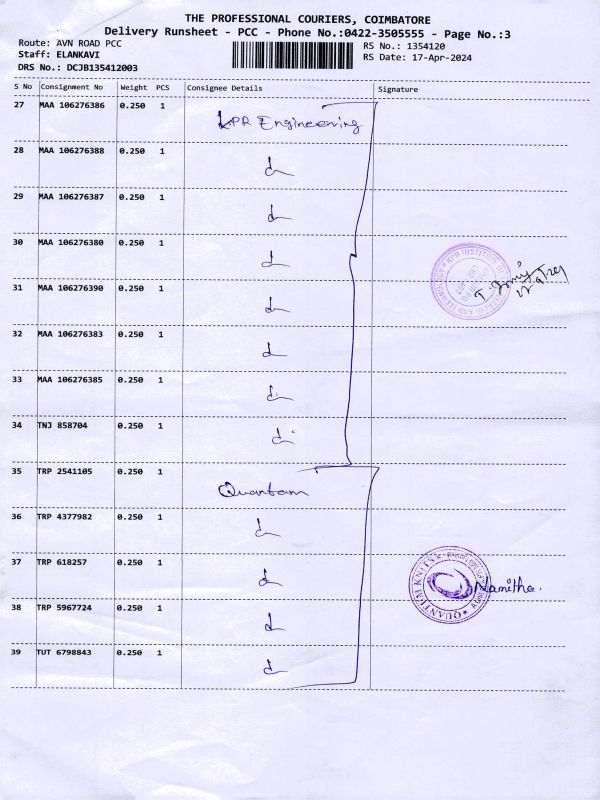 THE PROFESSIONAL COURIERS, COIMBATORE
Delivery Runsheet - PCC - Phone No.:0422-3505555 - Page No.:3
Route: AVN ROAD PCC
RS No.: 1354120
Staff: ELANKAVI
RS Date: 17-Apr-2024
DRS No.: DCJB135412003
S No Consignment No Weight PCS Consignee Details Signature
27 MAA 106276386 0.250 1 KPR Engineering
28 MAA 106276388 0.250 1
29 MAA 106276387 0.250 1
30 MAA 106276380 0.250 1
31 MAA 106276390 0.250 1
32 MAA 106276383 0.250 1
33 MAA 106276385 0.250 1
34 TNJ 858704 0.250 1
35 TRP 2541105 0.250 1 Quantam
36 TRP 4377982 0.250 1
37 TRP 618257 0.250 1 QUANTUM KNITS
38 TRP 5967724 0.250 1
39 TUT 6798843 0.250 1